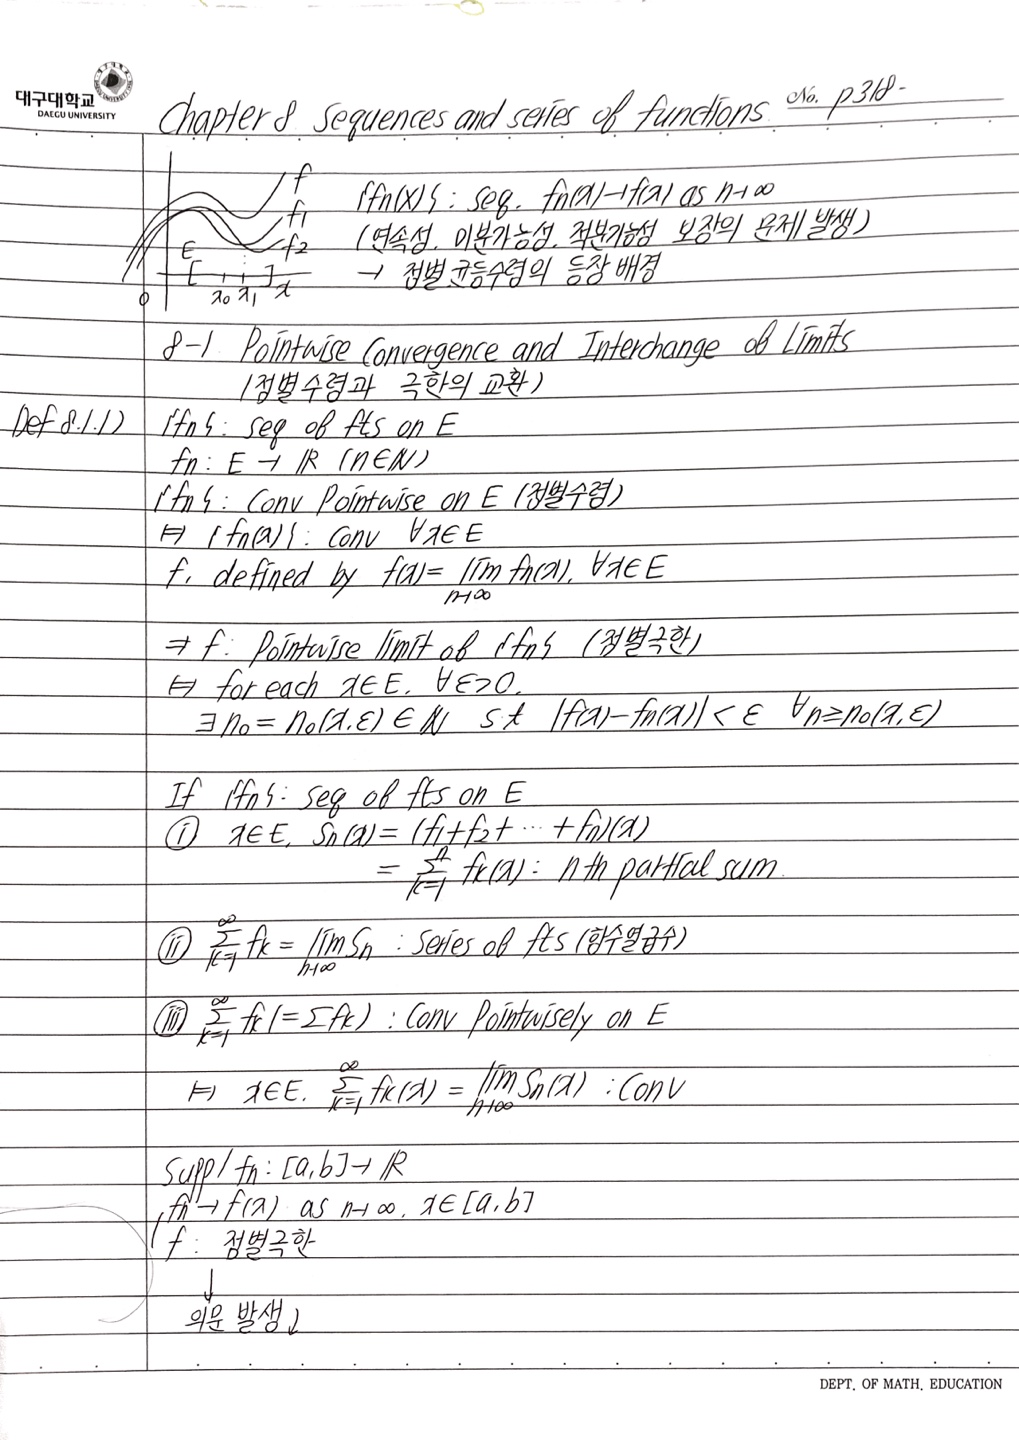 대구대학교
DAEGU UNIVERSITY
Chapter 8 Sequences and series of functions No. p318-
f
f1
f2
E
[ ]
x0 x1 x
0
{fn(x)}: seq. fn(x)→f(x) as n→∞
(연속성. 미분가능성. 적분가능성 보장의 문제 발생)
→ 점별 균등수렴의 등장 배경
8-1 Pointwise Convergence and Interchange of Limits
(점별수렴과 극한의 교환)
Def 8.1.1) {fn}: seq of fts on E
fn: E → ℝ (n∈ℕ)
{fn}: Conv Pointwise on E (점별수렴)
⟺ {fn(x)}: Conv ∀x∈E
f. defined by f(x)= lim n→∞ fn(x). ∀x∈E
⇒ f: Pointwise limit of {fn} (점별극한)
⟺ for each x∈E. ∀ε>0.
∃n0 = n0(x.ε) ∈ ℕ s.t |f(x)-fn(x)| < ε ∀n≥n0(x,ε)
If {fn}: seq of fts on E
ⓘ x∈E. Sn(x)= (f1+f2+ ⋯ +fn)(x)
= Σ k=1 n fk(x): nth partial sum.
ⅱ Σ k=1 ∞ fk = lim n→∞ Sn : Series of fts (함수열급수)
ⅲ Σ k=1 ∞ fk (=Σfk) : Conv Pointwisely on E
⟺ x∈E. Σ k=1 ∞ fk(x) = lim n→∞ Sn(x) : Conv
Supp/ fn: [a,b]→ ℝ
fn → f(x) as n→∞. x∈[a,b]
f: 점별극한
↓
의문 발생↓
DEPT. OF MATH. EDUCATION